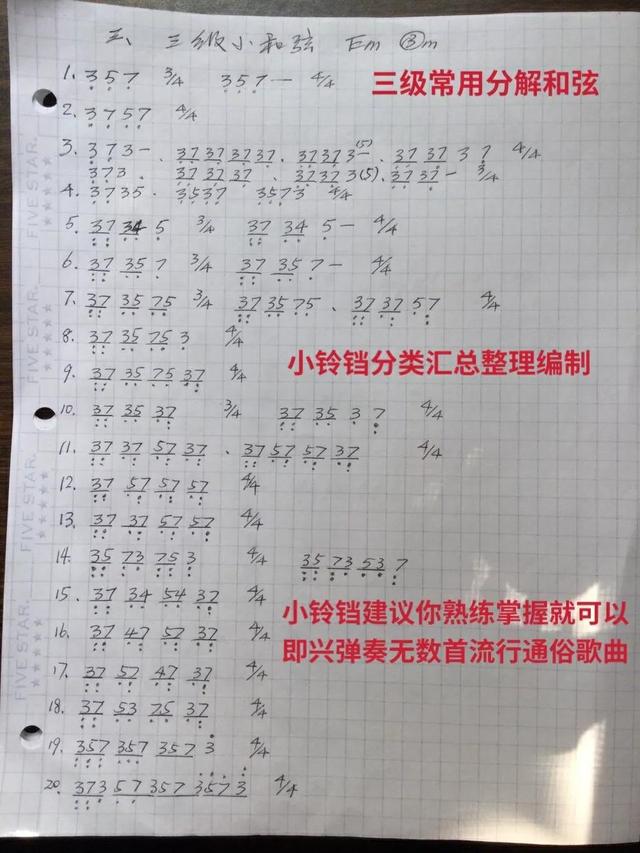 三、三级小和弦 Em ③m
三级常用分解和弦
1. 357 3/4 357— 4/4
2. 3757 4/4
3. 373— . 37 37 37 37 . 37 37 3—(5) . 37 37 3 7 4/4
373 . 37 37 37 . 37 37 3(5) . 37 37— 3/4
4. 3735 . 3537 3573 4/4
5. 37 34 5 3/4 37 34 5— 4/4
6. 37 35 7 3/4 37 35 7— 4/4
7. 37 35 75 3/4 37 35 75 、 37 37 57 4/4
8. 37 35 75 3 4/4
小铃铛分类汇总整理编制
9. 37 35 75 37 4/4
10. 37 35 37 3/4 37 35 3 7 4/4
11. 37 37 57 37 、 37 57 57 37 4/4
12. 37 57 57 57 4/4
13. 37 37 57 57 4/4
14. 35 73 75 3 4/4 35 73 53 7
15. 37 34 54 37 4/4
小铃铛建议你熟练掌握就可以
16. 37 47 57 37 4/4
即兴弹奏无数首流行通俗歌曲
17. 37 57 47 37 4/4
18. 37 53 75 37 4/4
19. 357 357 357 3 4/4
20. 373 57 357 3573 4/4
FIVE STAR.
FIVE STAR.
FIVE STAR.
FIVE STAR.
FIVE STAR.